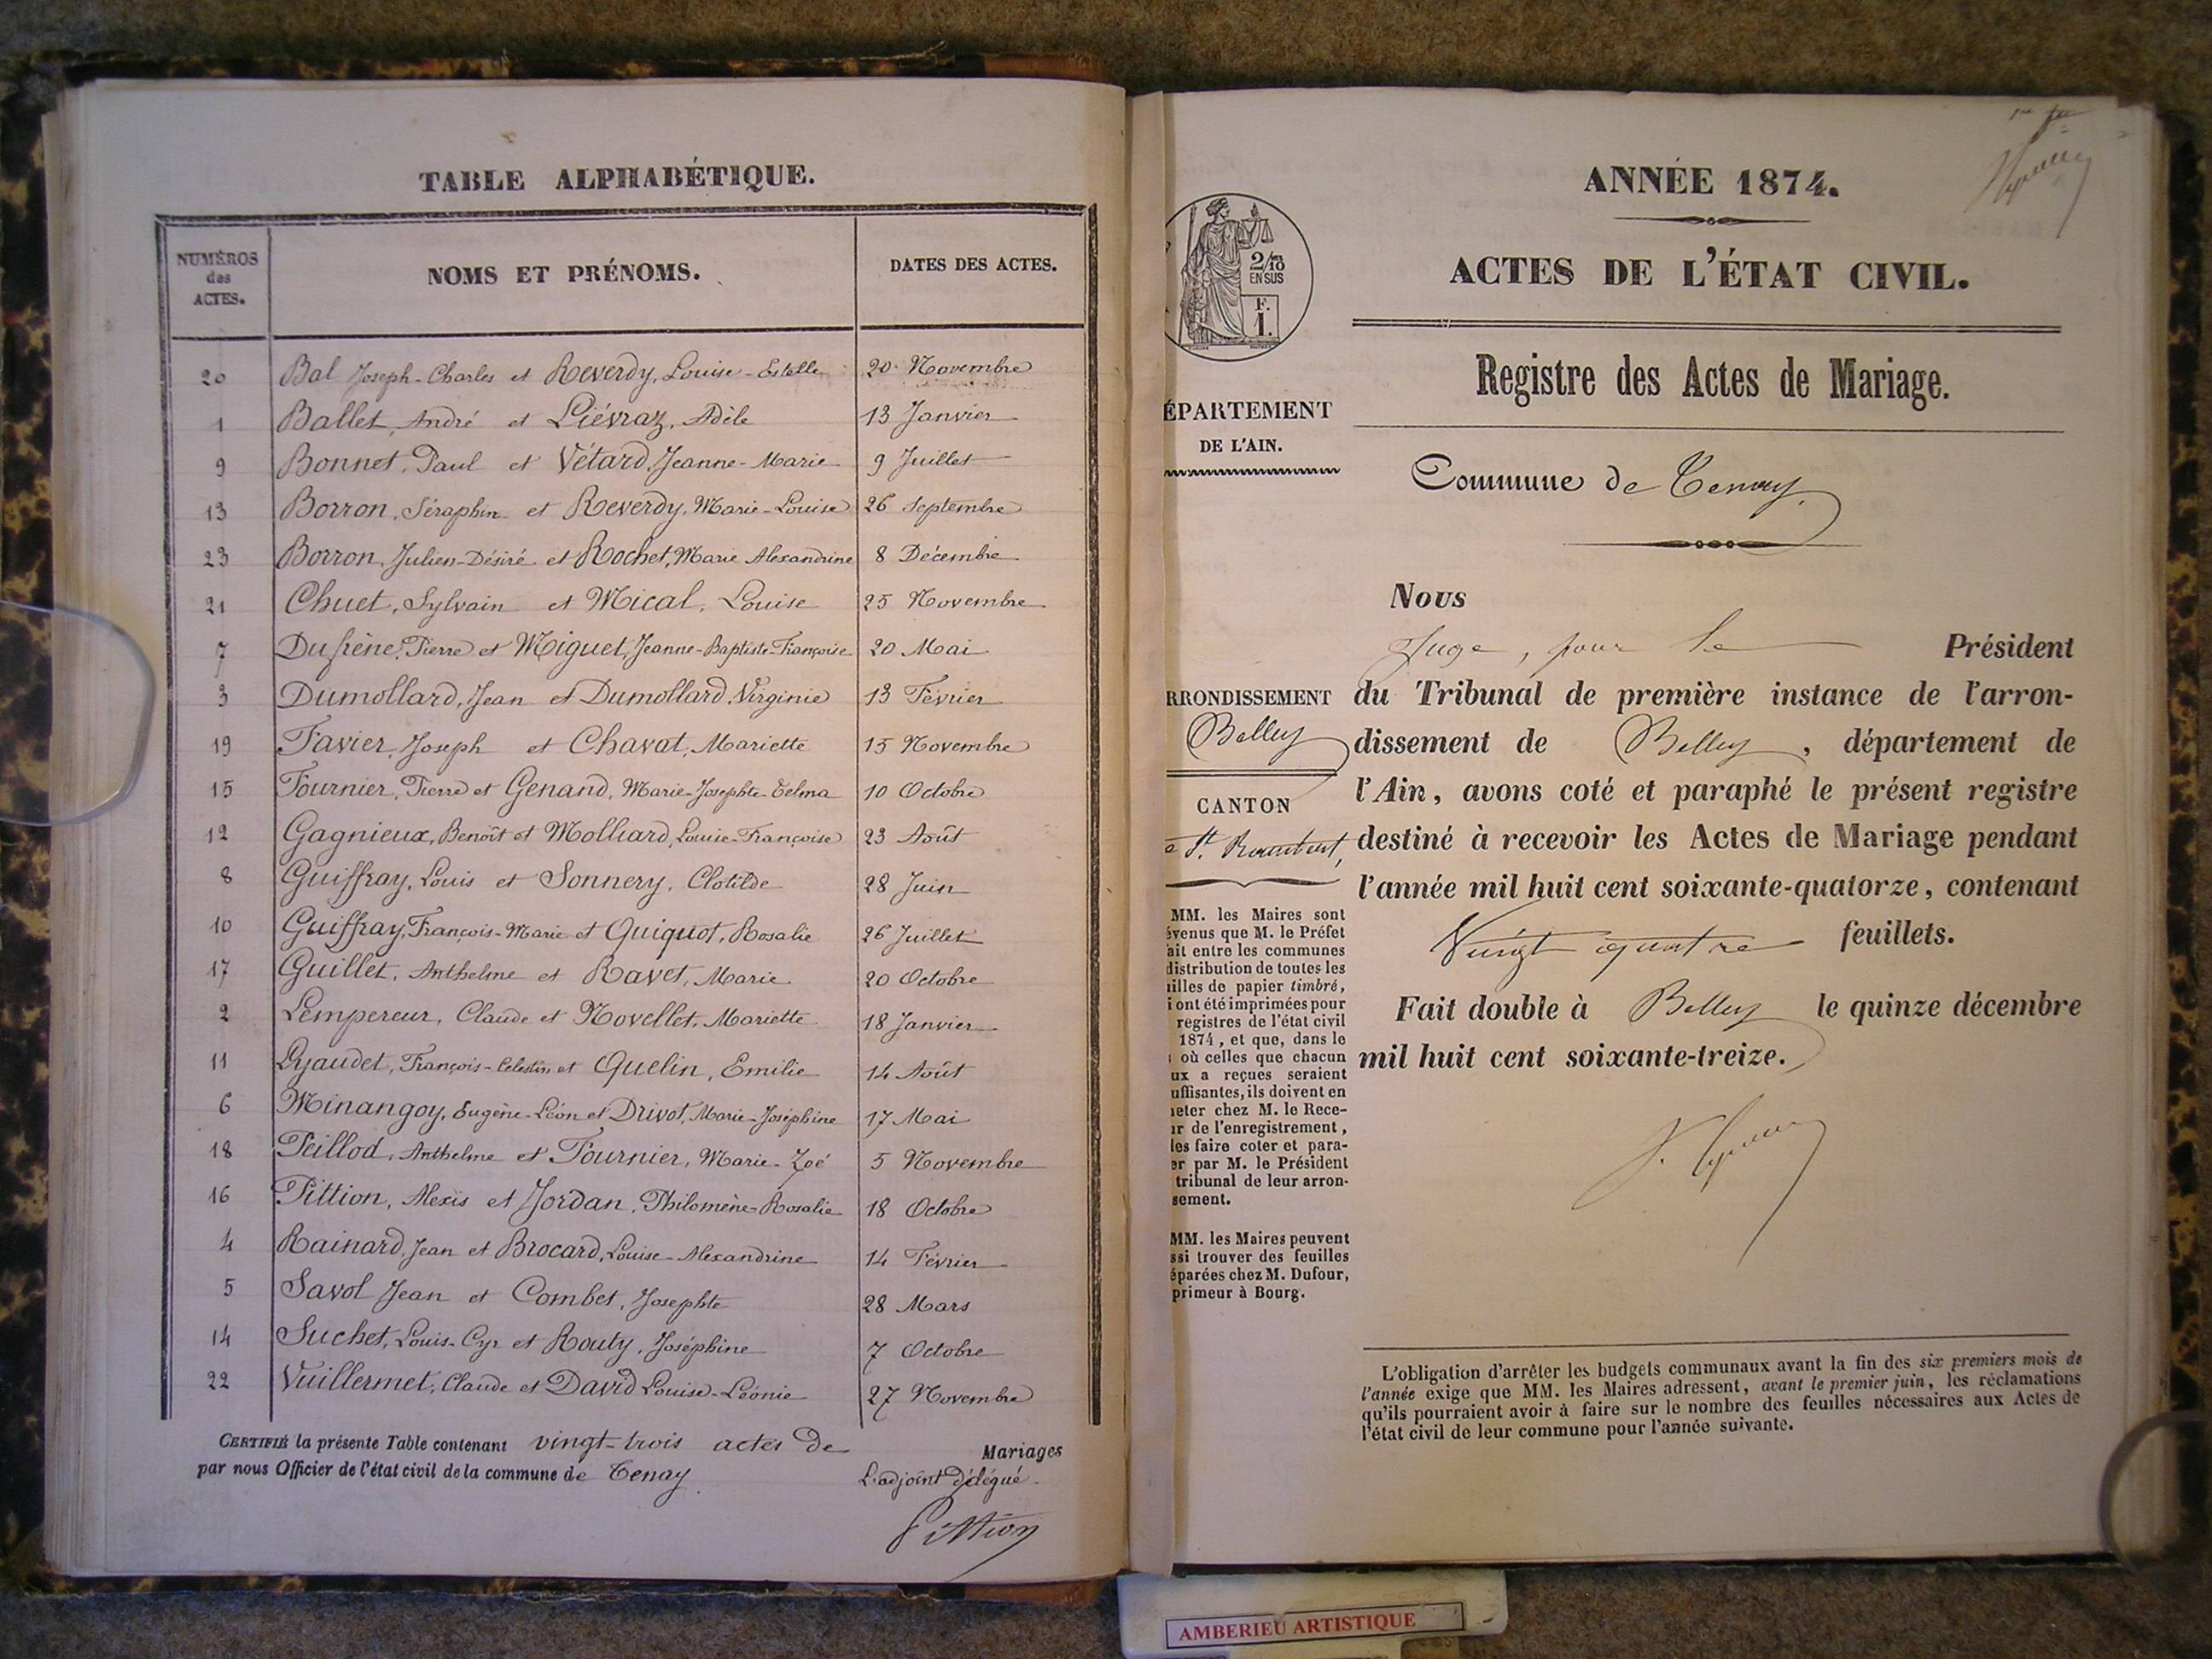 TABLE ALPHABÉTIQUE.
NUMÉROS des ACTES.
NOMS ET PRÉNOMS.
DATES DES ACTES.
20 Bal Joseph-Charles et Reverdy, Louise-Estelle 20 Novembre
1 Ballet, André et Liévraz, Adèle 13 Janvier
9 Bonnet, Paul et Vétard, Jeanne-Marie 9 Juillet
13 Borron, Séraphin et Reverdy, Marie-Louise 26 Septembre
23 Borron, Julien-Désiré et Rochet, Marie Alexandrine 8 Décembre
21 Chuet, Sylvain et Mical, Louise 25 Novembre
7 Dufrène, Pierre et Miguet, Jeanne-Baptiste-Françoise 20 Mai
3 Dumollard, Jean et Dumollard, Virginie 13 Février
19 Favier, Joseph et Chavat, Mariette 15 Novembre
15 Fournier, Pierre et Genand, Marie-Josephte-Zelma 10 Octobre
12 Gagnieux, Benoît et Molliard, Louise-Françoise 23 Août
8 Guiffray, Louis et Sonnery, Clotilde 28 Juin
10 Guiffray, François-Marie et Quiquot, Rosalie 26 Juillet
17 Guillet, Anthelme et Ravet, Marie 20 Octobre
2 Lempereur, Claude et Novellet, Mariette 18 Janvier
11 Lyaudet, François-Celestin et Quelin, Emilie 14 Août
6 Minangoy, Eugène-Léon et Drivot, Marie-Joséphine 17 Mai
18 Peillod, Anthelme et Fournier, Marie-Zoé 5 Novembre
16 Pittion, Alexis et Jordan, Philomène-Rosalie 18 Octobre
4 Rainard, Jean et Brocard, Louise-Alexandrine 14 Février
5 Savol Jean et Combet, Josephte 28 Mars
14 Suchet, Louis-Cyr et Routy, Joséphine 7 Octobre
22 Vuillermet, Claude et David Louise-Léonie 27 Novembre
CERTIFIÉ la présente Table contenant vingt-trois actes de Mariages
par nous Officier de l'état civil de la commune de Tenay.
L'adjoint délégué
Pittion
ANNÉE 1874.
ACTES DE L'ÉTAT CIVIL.
2/10 EN SUS
F. 1.
Registre des Actes de Mariage.
ÉPARTEMENT
DE L'AIN.
Commune de Tenay.
RRONDISSEMENT
Belley
CANTON
St. Rambert,
MM. les Maires sont
évenus que M. le Préfet
ait entre les communes
distribution de toutes les
illes de papier timbré,
i ont été imprimées pour
registres de l'état civil
1874, et que, dans le
où celles que chacun
ux a reçues seraient
uffisantes, ils doivent en
eter chez M. le Rece-
ur de l'enregistrement,
les faire coter et para-
er par M. le Président
tribunal de leur arron-
sement.
MM. les Maires peuvent
ssi trouver des feuilles
éparées chez M. Dufour,
primeur à Bourg.
Nous
Juge, pour le Président
du Tribunal de première instance de l'arron-
dissement de Belley, département de
l'Ain, avons coté et paraphé le présent registre
destiné à recevoir les Actes de Mariage pendant
l'année mil huit cent soixante-quatorze, contenant
Vingt quatre feuillets.
Fait double à Belley le quinze décembre
mil huit cent soixante-treize.
L'obligation d'arrêter les budgets communaux avant la fin des six premiers mois de
l'année exige que MM. les Maires adressent, avant le premier juin, les réclamations
qu'ils pourraient avoir à faire sur le nombre des feuilles nécessaires aux Actes de
l'état civil de leur commune pour l'année suivante.
AMBERIEU ARTISTIQUE